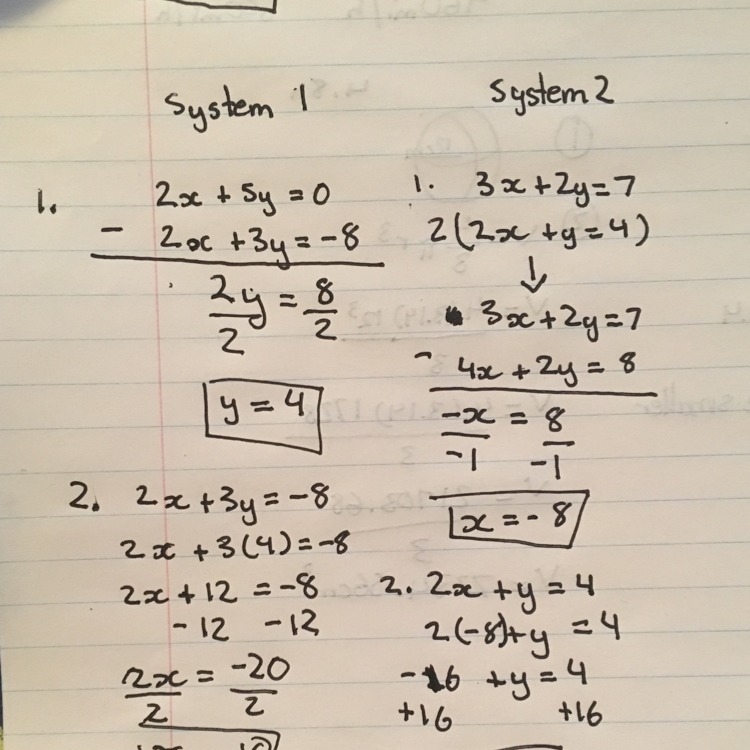 System 1
1. 2x + 5y = 0
- 2x + 3y = -8
2y/2 = 8/2
y = 4
2. 2x + 3y = -8
2x + 3(4) = -8
2x + 12 = -8
-12 -12
2x/2 = -20/2
System 2
1. 3x + 2y = 7
2(2x + y = 4)
↓
3x + 2y = 7
- 4x + 2y = 8
-x/-1 = 8/-1
x = -8
2. 2x + y = 4
2(-8) + y = 4
-16 + y = 4
+16 +16